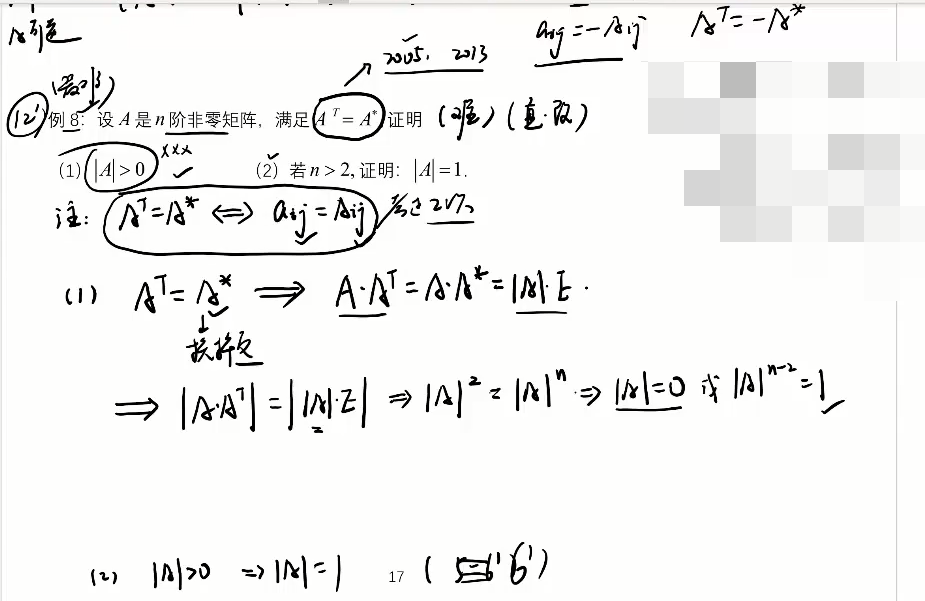 a_{ij} = -A_{ij}  A^T = -A^*
2005, 2013
(12') 例 8：设 A 是 n 阶非零矩阵，满足 A^T = A^* 证明 (难) (直·仅)
(1) |A| > 0 ××× (2) 若 n > 2, 证明：|A| = 1.
注： A^T = A^* ⇔ a_{ij} = A_{ij}
(1) A^T = A^* ⇒ A·A^T = A·A^* = |A|·E.
⇒ |A·A^T| = ||A|·E| ⇒ |A|^2 = |A|^n ⇒ |A| = 0 或 |A|^{n-2} = 1
(2) |A| > 0 ⇒ |A| = 1 17 ( 6')